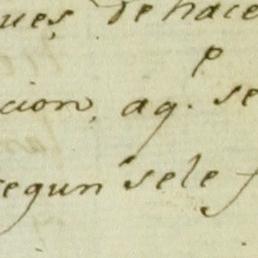 ues, de hace
cion, aq.e se
egun sele f